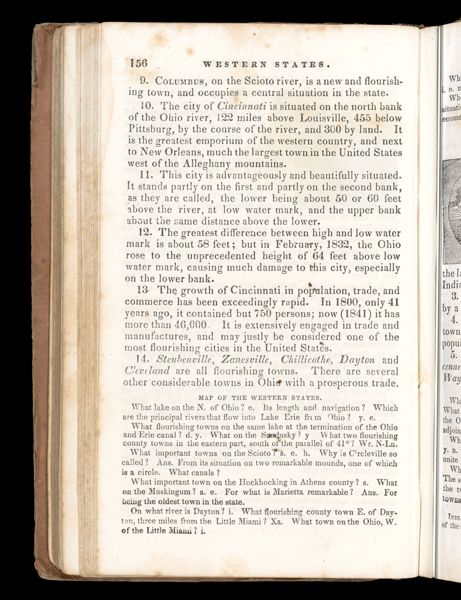 156 WESTERN STATES.
9. COLUMBUS, on the Scioto river, is a new and flourish-
ing town, and occupies a central situation in the state.
10. The city of Cincinnati is situated on the north bank
of the Ohio river, 122 miles above Louisville, 455 below
Pittsburg, by the course of the river, and 300 by land. It
is the greatest emporium of the western country, and next
to New Orleans, much the largest town in the United States
west of the Alleghany mountains.
11. This city is advantageously and beautifully situated.
It stands partly on the first and partly on the second bank,
as they are called, the lower being about 50 or 60 feet
above the river, at low water mark, and the upper bank
about the same distance above the lower.
12. The greatest difference between high and low water
mark is about 58 feet; but in February, 1832, the Ohio
rose to the unprecedented height of 64 feet above low
water mark, causing much damage to this city, especially
on the lower bank.
13 The growth of Cincinnati in population, trade, and
commerce has been exceedingly rapid. In 1800, only 41
years ago, it contained but 750 persons; now (1841) it has
more than 46,000. It is extensively engaged in trade and
manufactures, and may justly be considered one of the
most flourishing cities in the United States.
14. Steubenville, Zanesville, Chillicothe, Dayton and
Cleveland are all flourishing towns. There are several
other considerable towns in Ohio with a prosperous trade.
MAP OF THE WESTERN STATES.
What lake on the N. of Ohio? e. Its length and navigation? Which
are the principal rivers that flow into Lake Erie from Ohio? y. e.
What flourishing towns on the same lake at the termination of the Ohio
and Erie canal? d. y. What on the Sandusky? y What two flourishing
county towns in the eastern part, south of the parallel of 41°? Wr. N-La.
What important towns on the Scioto? s. e. h. Why is Circleville so
called? Ans. From its situation on two remarkable mounds, one of which
is a circle. What canals?
What important town on the Hockhocking in Athens county? s. What
on the Muskingum? a. e. For what is Marietta remarkable? Ans. For
being the oldest town in the state.
On what river is Dayton? i. What flourishing county town E. of Day-
ton, three miles from the Little Miami? Xa. What town on the Ohio, W.
of the Little Miami? i.